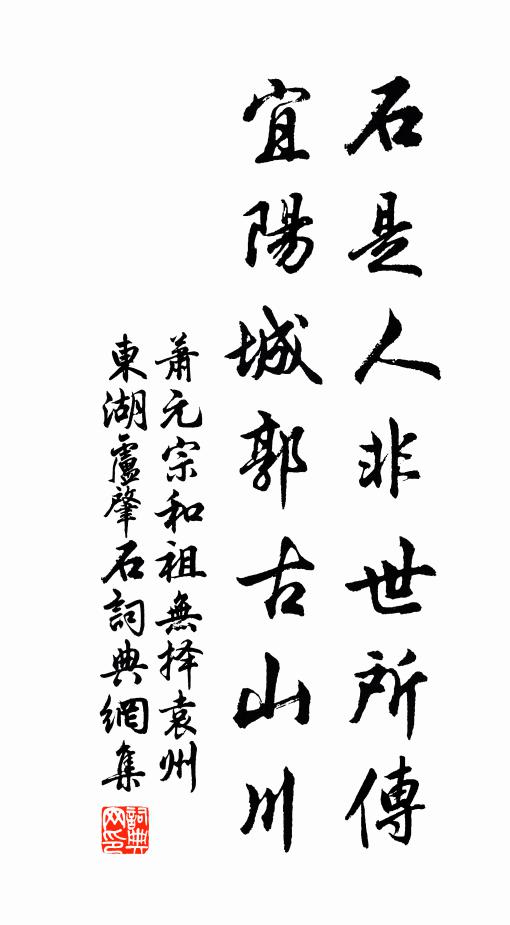 石是人非世所傳
宜陽城郭古山川
蕭元宗和祖無择袁州
東湖盧肇石詞典網集
詞典网印